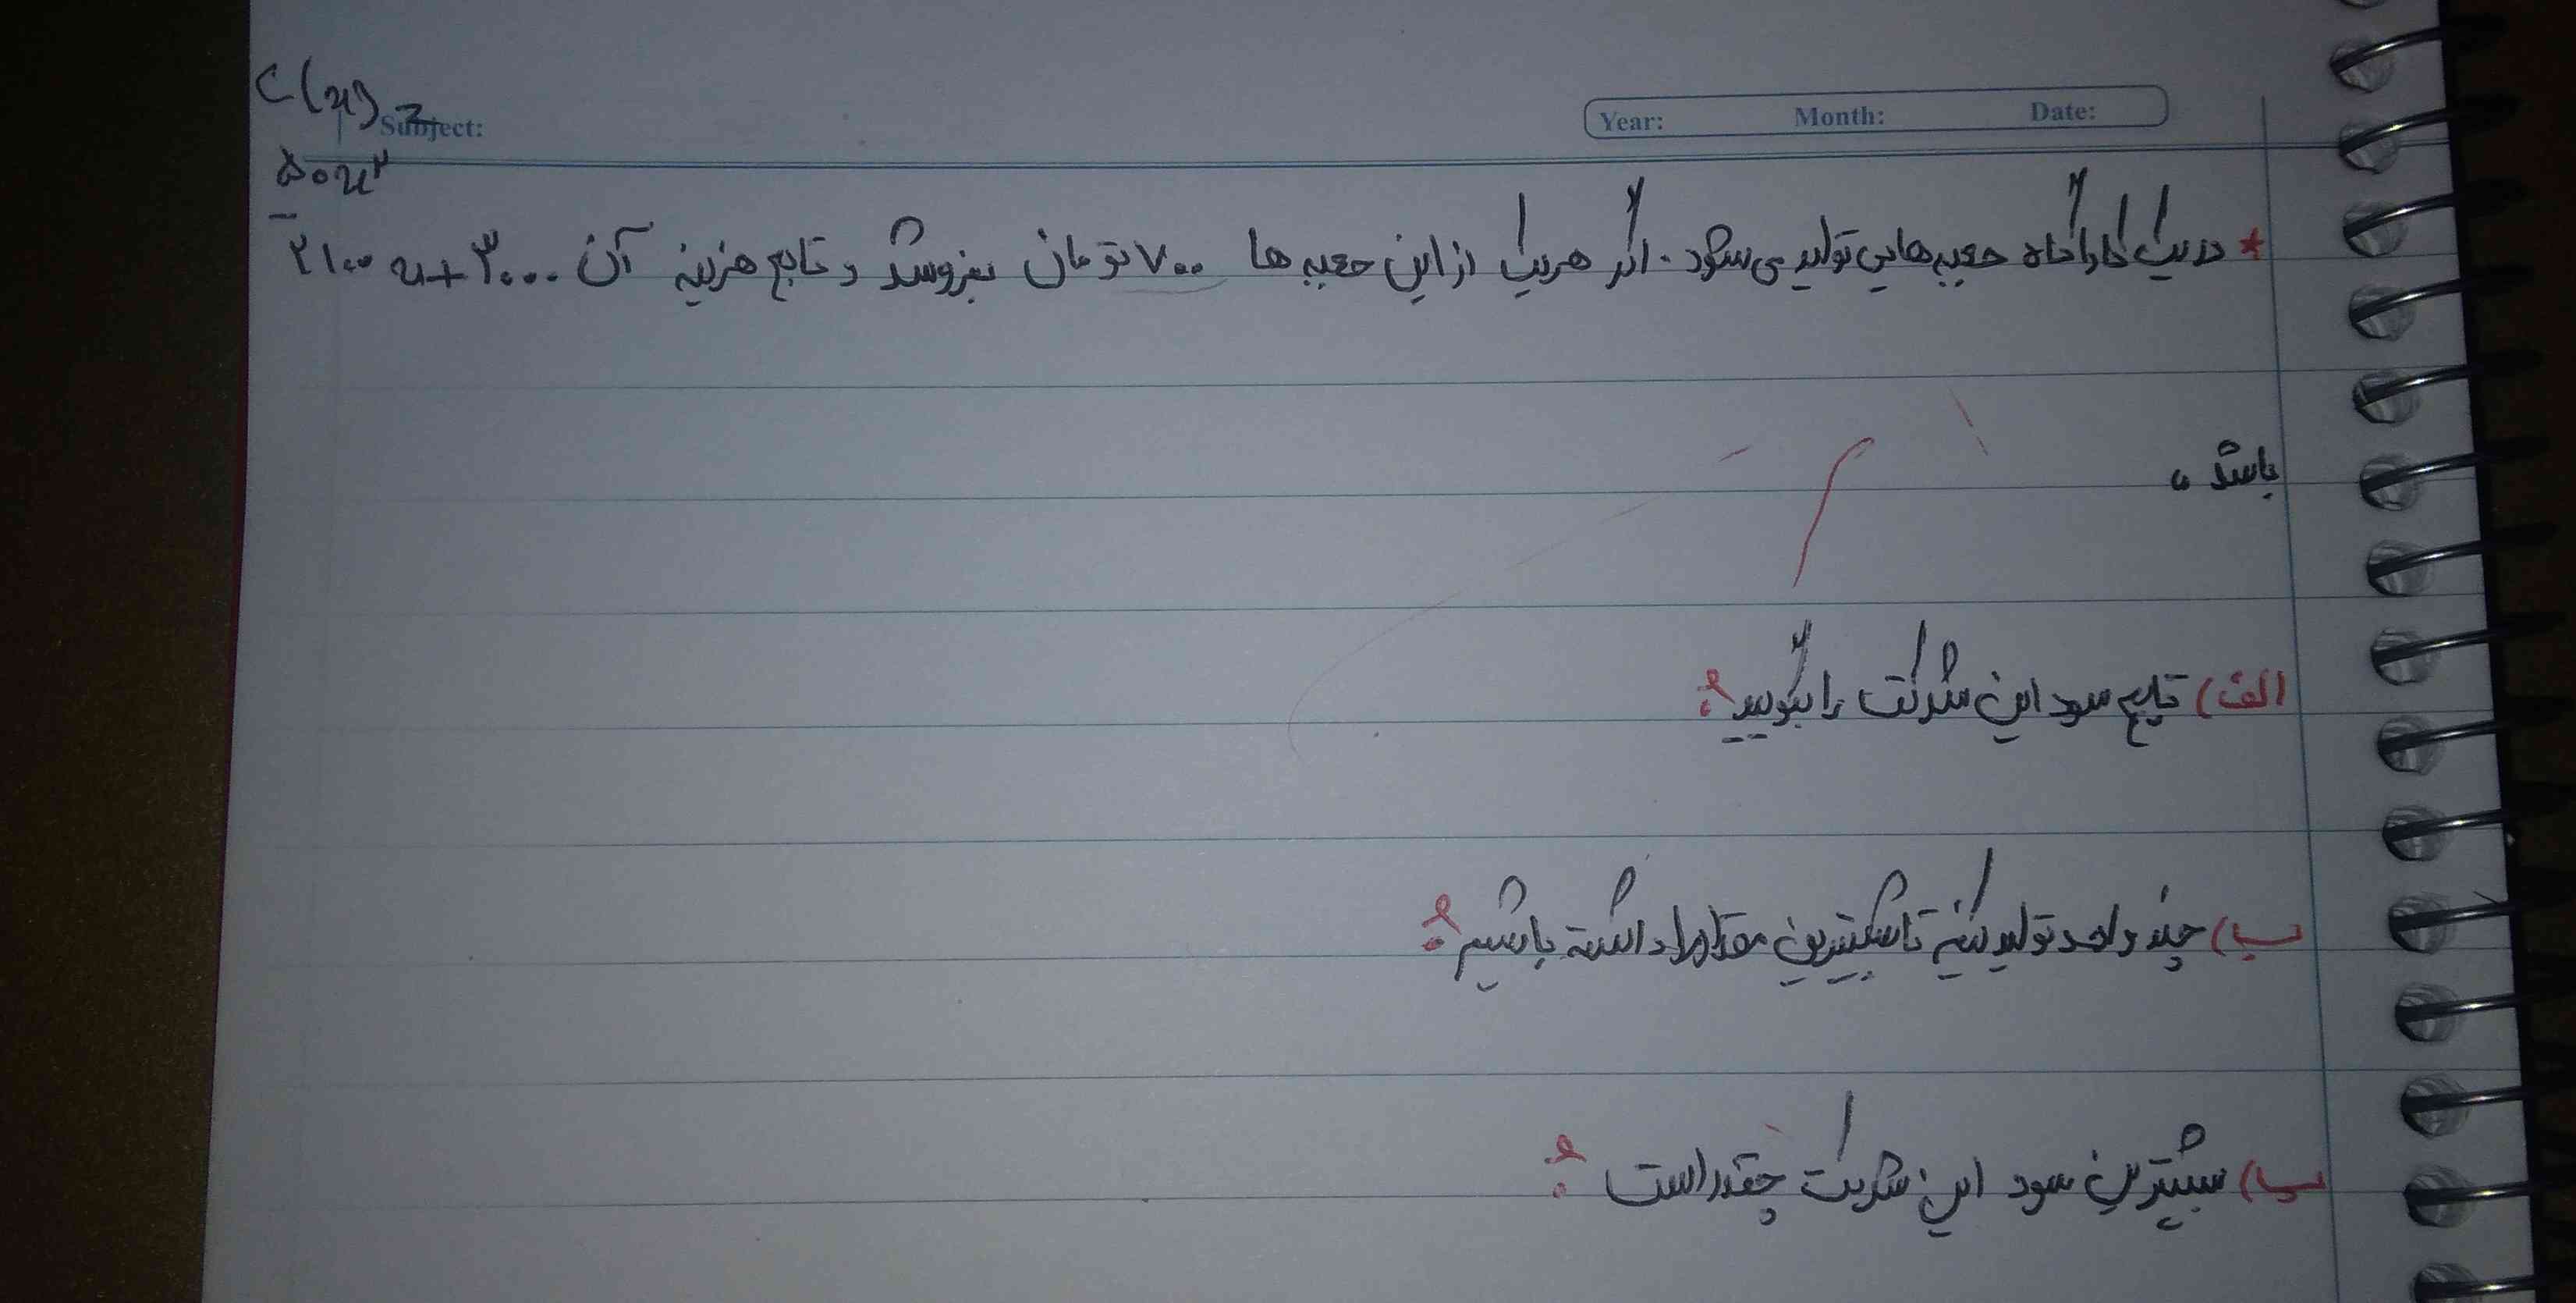 C(x) =
Subject:
Year: Month: Date:
۵۰x²
−
* در یک کاراگاه جعبه‌هایی تولید می‌شود. اگر هر یک از این جعبه ها ۷۰۰ تومان بفروشد و تابع هزینه آن ۲۱۰۰x + ۳۰۰۰
باشد،
الف) تابع سود این شرکت را بگویید؟
ب) چند واحد تولید کنیم تا بیشترین مقدار را داشته باشیم؟
پ) بیشترین سود این شرکت چقدر است؟